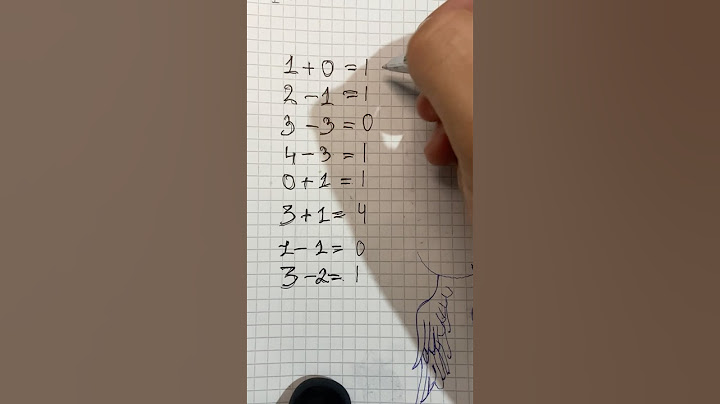 1 + 0 = 1
2 - 1 = 1
3 - 3 = 0
4 - 3 = 1
0 + 1 = 1
3 + 1 = 4
1 - 1 = 0
3 - 2 = 1